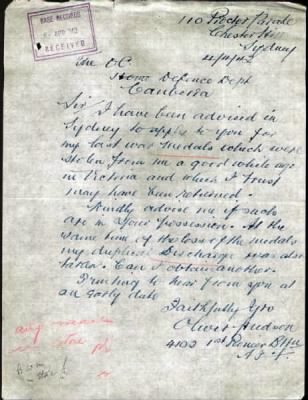 BASE RECORDS
APR
RECEIVED
110 Proctor Parade
Chester Hill
Sydney
The O.C.
Home Defence Dept
Canberra
Sir I have been advised in
Sydney to apply to you for
my last war medals which were
stolen from me a good while ago
in Victoria and which I trust
may have been returned.
Kindly advise me if such
are in your possession. At the
same time of the loss of the medals
my duplicate Discharge was also
taken. Can I obtain another.
Trusting to hear from you at
an early date
Faithfully Yrs
Oliver Hudson
4102 1st Pioneer Btn
A.I.F.
any
in store ph